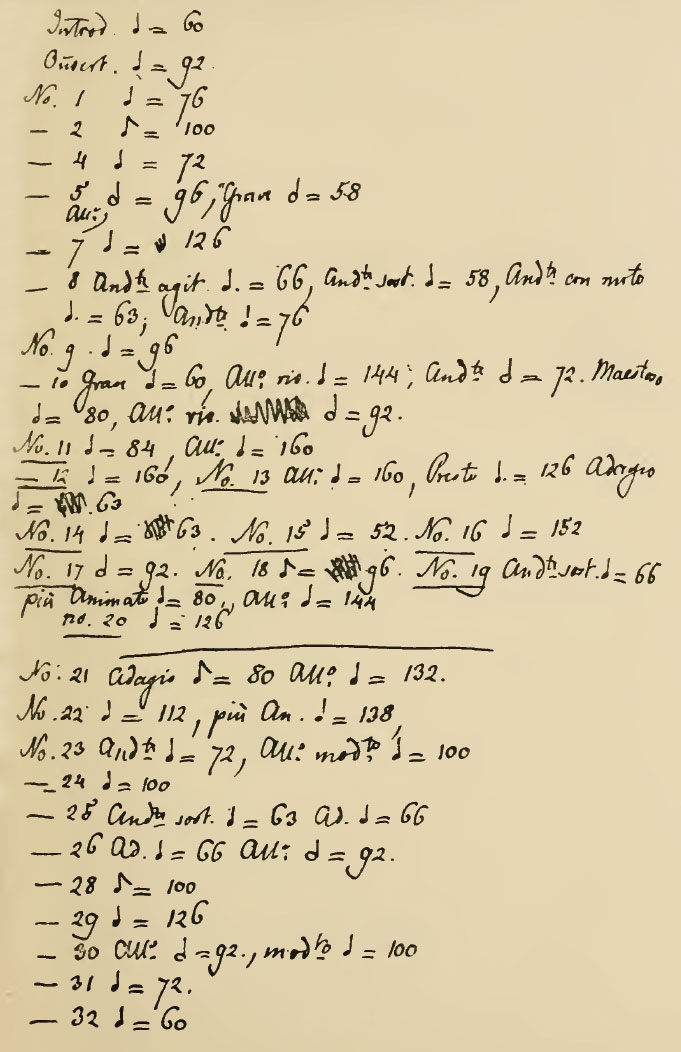 Introd. ♩ = 60
Ouvert. ♩ = 92.
No. 1 ♩ = 76
— 2 ♪ = 100
— 4 ♩ = 72
— 5 𝅗𝅥 = 96, Grave 𝅗𝅥 = 58
All:o
— 7 ♩ = 126
— 8 Andte agit. ♩. = 66, Andte sost. ♩ = 58, Andte con moto
♩. = 63; Andte ♩ = 76
No. 9. 𝅗𝅥 = 96
— 10 Grave ♩ = 60, All:o viv. ♩ = 144; Andte 𝅗𝅥 = 72. Maestoso
♩ = 80, All:o viv. 𝅗𝅥 = 92.
No. 11 ♩ = 84, All:o ♩ = 160
— 12 ♩ = 160, No. 13 All:o ♩ = 160, Presto ♩. = 126 Adagio
♩ = 63
No. 14 ♩ = 63. No. 15 ♩ = 52. No. 16 ♩ = 152
No. 17 𝅗𝅥 = 92. No. 18 ♪ = 96. No. 19 Andte sost. ♩ = 66
più animato ♩ = 80, All:o ♩ = 144
no. 20 ♩ = 126
No: 21 Adagio ♪ = 80 All:o ♩ = 132.
No. 22 ♩ = 112, più An. ♩ = 138,
No. 23 Andte ♩ = 72, All:o modto ♩ = 100
— 24 ♩ = 100
— 25 Andte sost. ♩ = 63 Ad. ♩ = 66
— 26 Ad. ♩ = 66 All:o 𝅗𝅥 = 92.
— 28 ♪ = 100
— 29 ♩ = 126
— 30 All:o 𝅗𝅥 = 92., modto ♩ = 100
— 31 ♩ = 72.
— 32 ♩ = 60